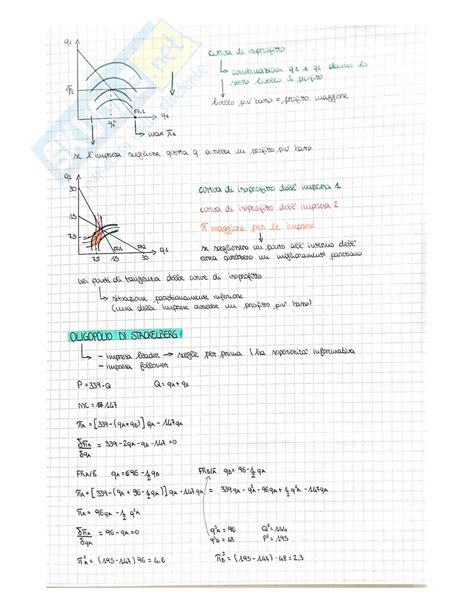 q₂
curva di isoprofitto
↳ combinazioni q₁ e q₂ danno lo
stesso livello di profitto
livello più basso = profitto maggiore
FR₁
q₁
→ max π₁
se l'impresa sceglie questa q avrebbe un profitto più basso
q₂
30
curva di isoprofitto dell' impresa 1
curva di isoprofitto dell' impresa 2
π maggiore per le imprese
15
7.5
se scegliessero un punto all' interno dell'
area avrebbero un miglioramento paretiano
FR2
q₁
7.5 15 30
nei punti di tangenza delle curve di isoprofitto
↳ situazione paretianamente inferiore
(una delle imprese avrebbe un profitto più basso)
OLIGOPOLIO DI STACKELBERG
↳ - impresa leader → sceglie per prima (ha superiorità informativa
- impresa follower
P = 339-Q Q = qA + qB
MC = 147
πA = [339-(qA+qB)] qA - 147qA
δπA/δqA = 339-2qA-qB-147 = 0
FRA/B qA = 96-½qB FRB/A qB = 96-½qA
πA = [339-(qA+96-½qA)] qA - 147qA = 339qA - q²A - 96qA + ½q²A - 147qA
πA = 96qA - ½q²A
δπA/δqA = 96-qA = 0 qˢA = 96 Qˢ = 144
qˢB = 48 Pˢ = 195
πˢA = (195-147) 96 = 4.6 πˢB = (195-147)·48 = 2.3